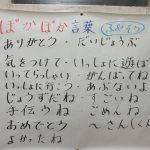 ぽかぽか言葉 ふやそう
ありがとう・だいじょうぶ
気をつけて・いっしょに遊ぼ
いってらっしゃい がんばってね
いっしょに行こう あぶないよ
じょうずだね すごいね
手伝うね ごめんね
おめでとう 〜さん(くん)
よかったね